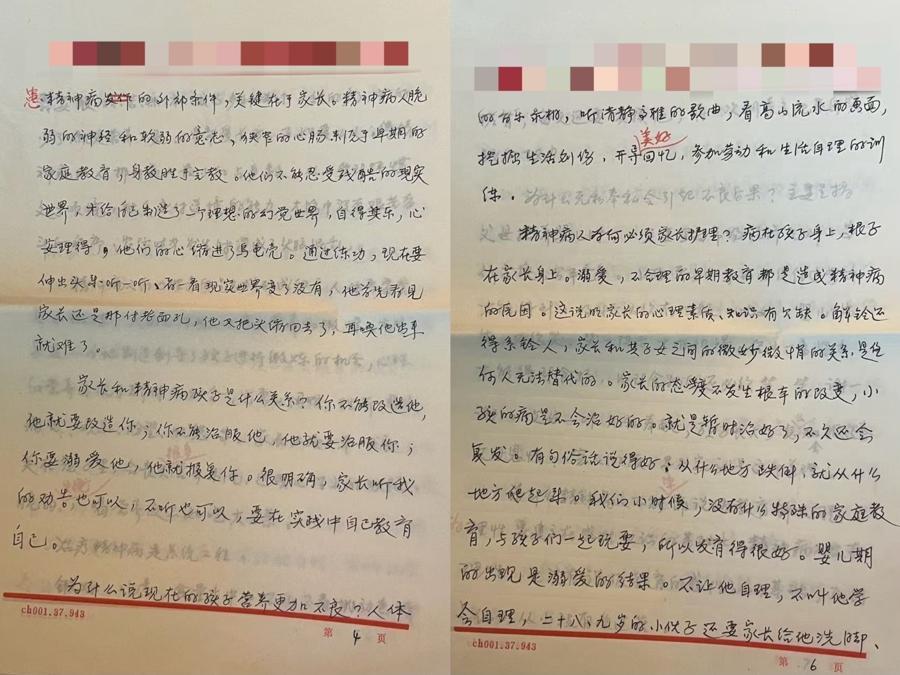 患精神病发作的外部条件，关键在于家长。精神病人脆
弱的神经和软弱的意志、狭窄的心肠来源于早期的
家庭教育，身教胜于言教。他们不能忍受残酷的现实
世界，才给自己制造了一个理想的幻觉世界，自得其乐，心
安理得，他们的心缩进了乌龟壳。通过练功，现在要
伸出头来听一听、看一看现实世界变了没有，他首先看见
家长还是那付老面孔，他又把头缩回去了，再唤他出来
就难了。
家长和精神病孩子是什么关系？你不能改造他，
他就要改造你；你不能治服他，他就要治服你；
你要溺爱他，他就报复你。很明确，家长听我
的劝告也可以，不听也可以，要在实践中自己教育
自己。
为什么说现在的孩子营养更加不良？人体
ch001.37.943
第 4 页
的音乐，听清静高雅的歌曲，看高山流水的画面，
挖掘生活创伤，开导美好回忆，参加劳动和生活自理的训
练。
精神病人为何必须家长护理？病在孩子身上，根子
在家长身上。溺爱，不合理的早期教育都是造成精神病
的原因。这说明家长的心理素质、知识有欠缺。解铃还
得系铃人，家长和其子女之间的微妙微肖的关系是任
何人无法替代的。家长的态度不发生根本的改变，小
孩的病是不会治好的。就是暂时治好了，不久还会
复发。有句俗话说得好：从什么地方跌倒，就从什么
地方爬起来。我们小时候，没有什么特殊的家庭教
育，与孩子们一起玩耍，所以发育得很好。婴儿期
的出现是溺爱的结果。不让他自理，不叫他学
会自理，二十八、九岁的小伙子还要家长给他洗脚、
ch001.37.943
第 6 页